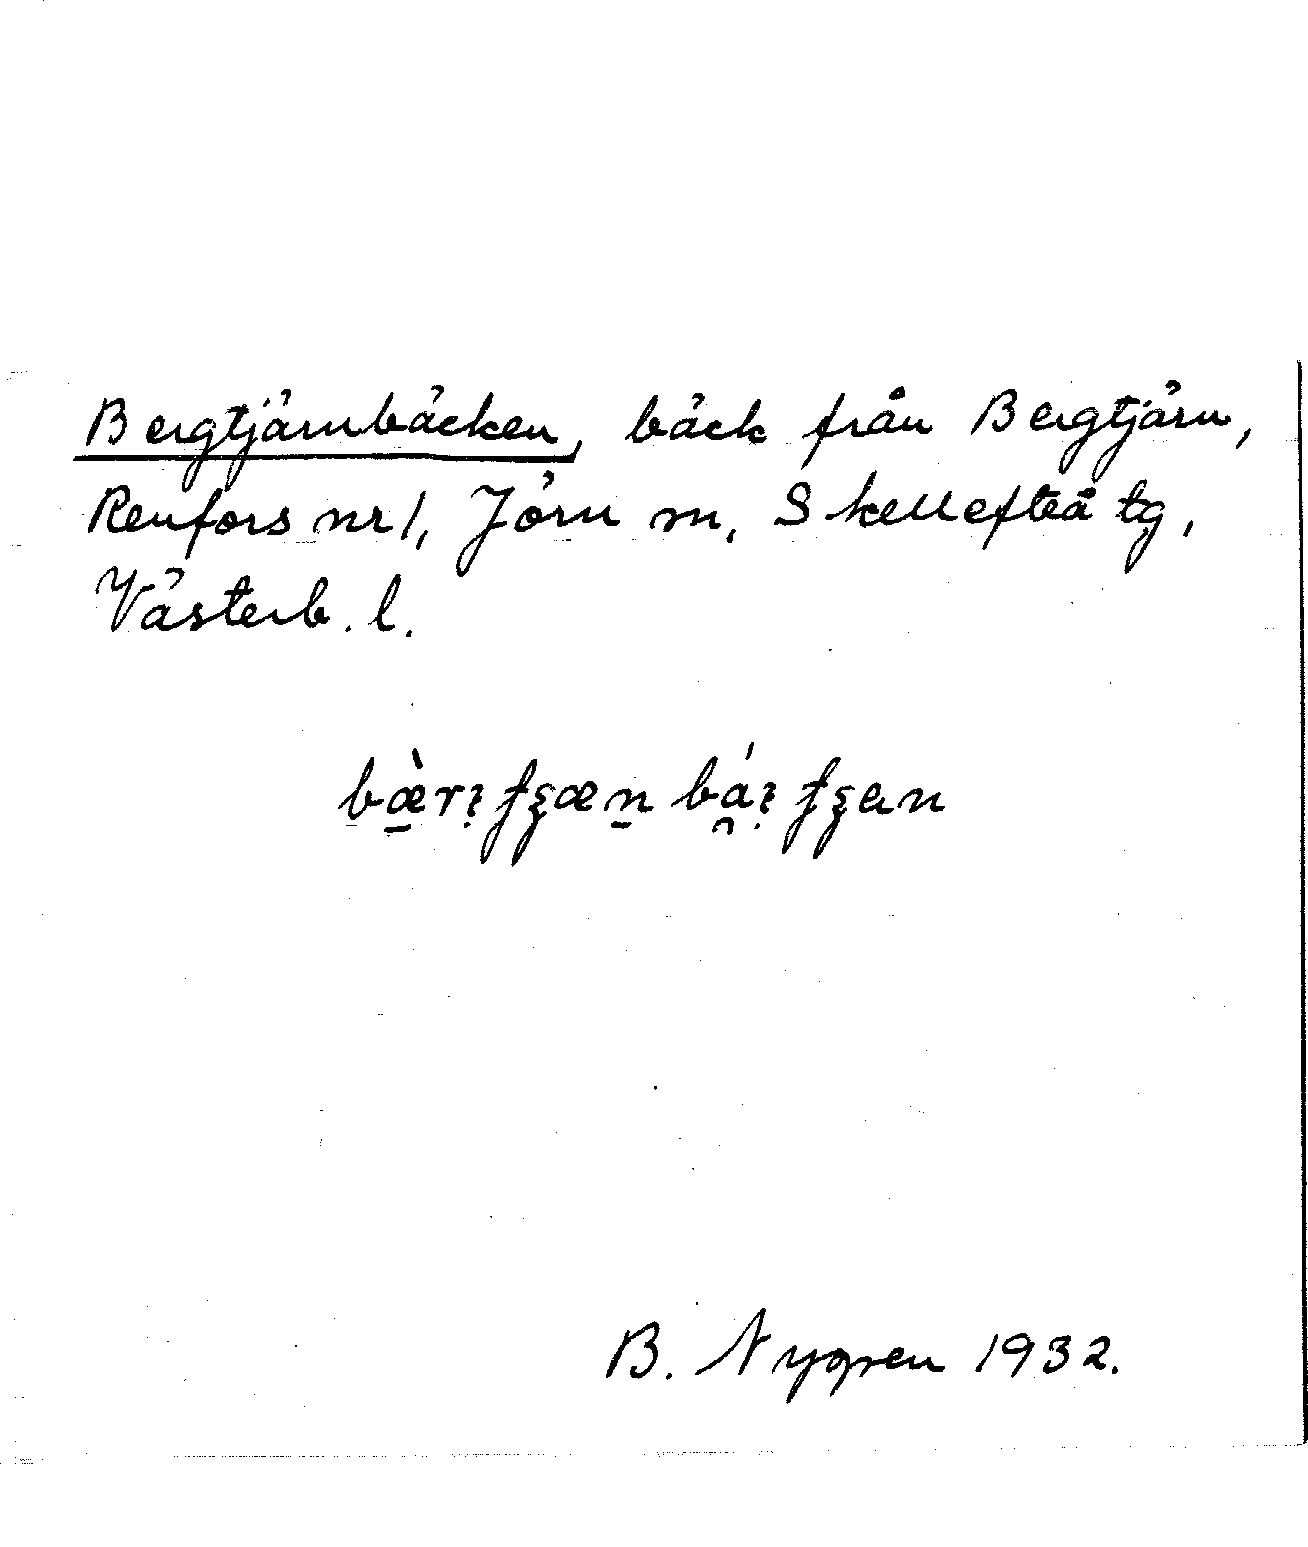 Bergtjärnbäcken, bäck från Bergtjärn,
Renfors nr 1, Jörn m, Skellefteå tg,
Västerb. l.
B. Nygren 1932.